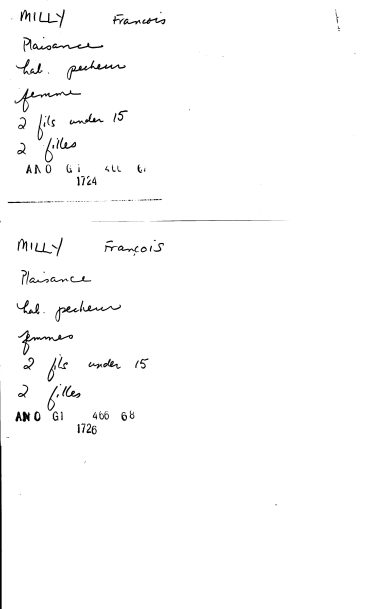 MILLY Francois
Plaisance
hab. pecheur
femme
2 fils under 15
2 filles
ANO G1
1724
MILLY François
Plaisance
hab. pecheur
femmes
2 fils under 15
2 filles
ANO G1 466 68
1726